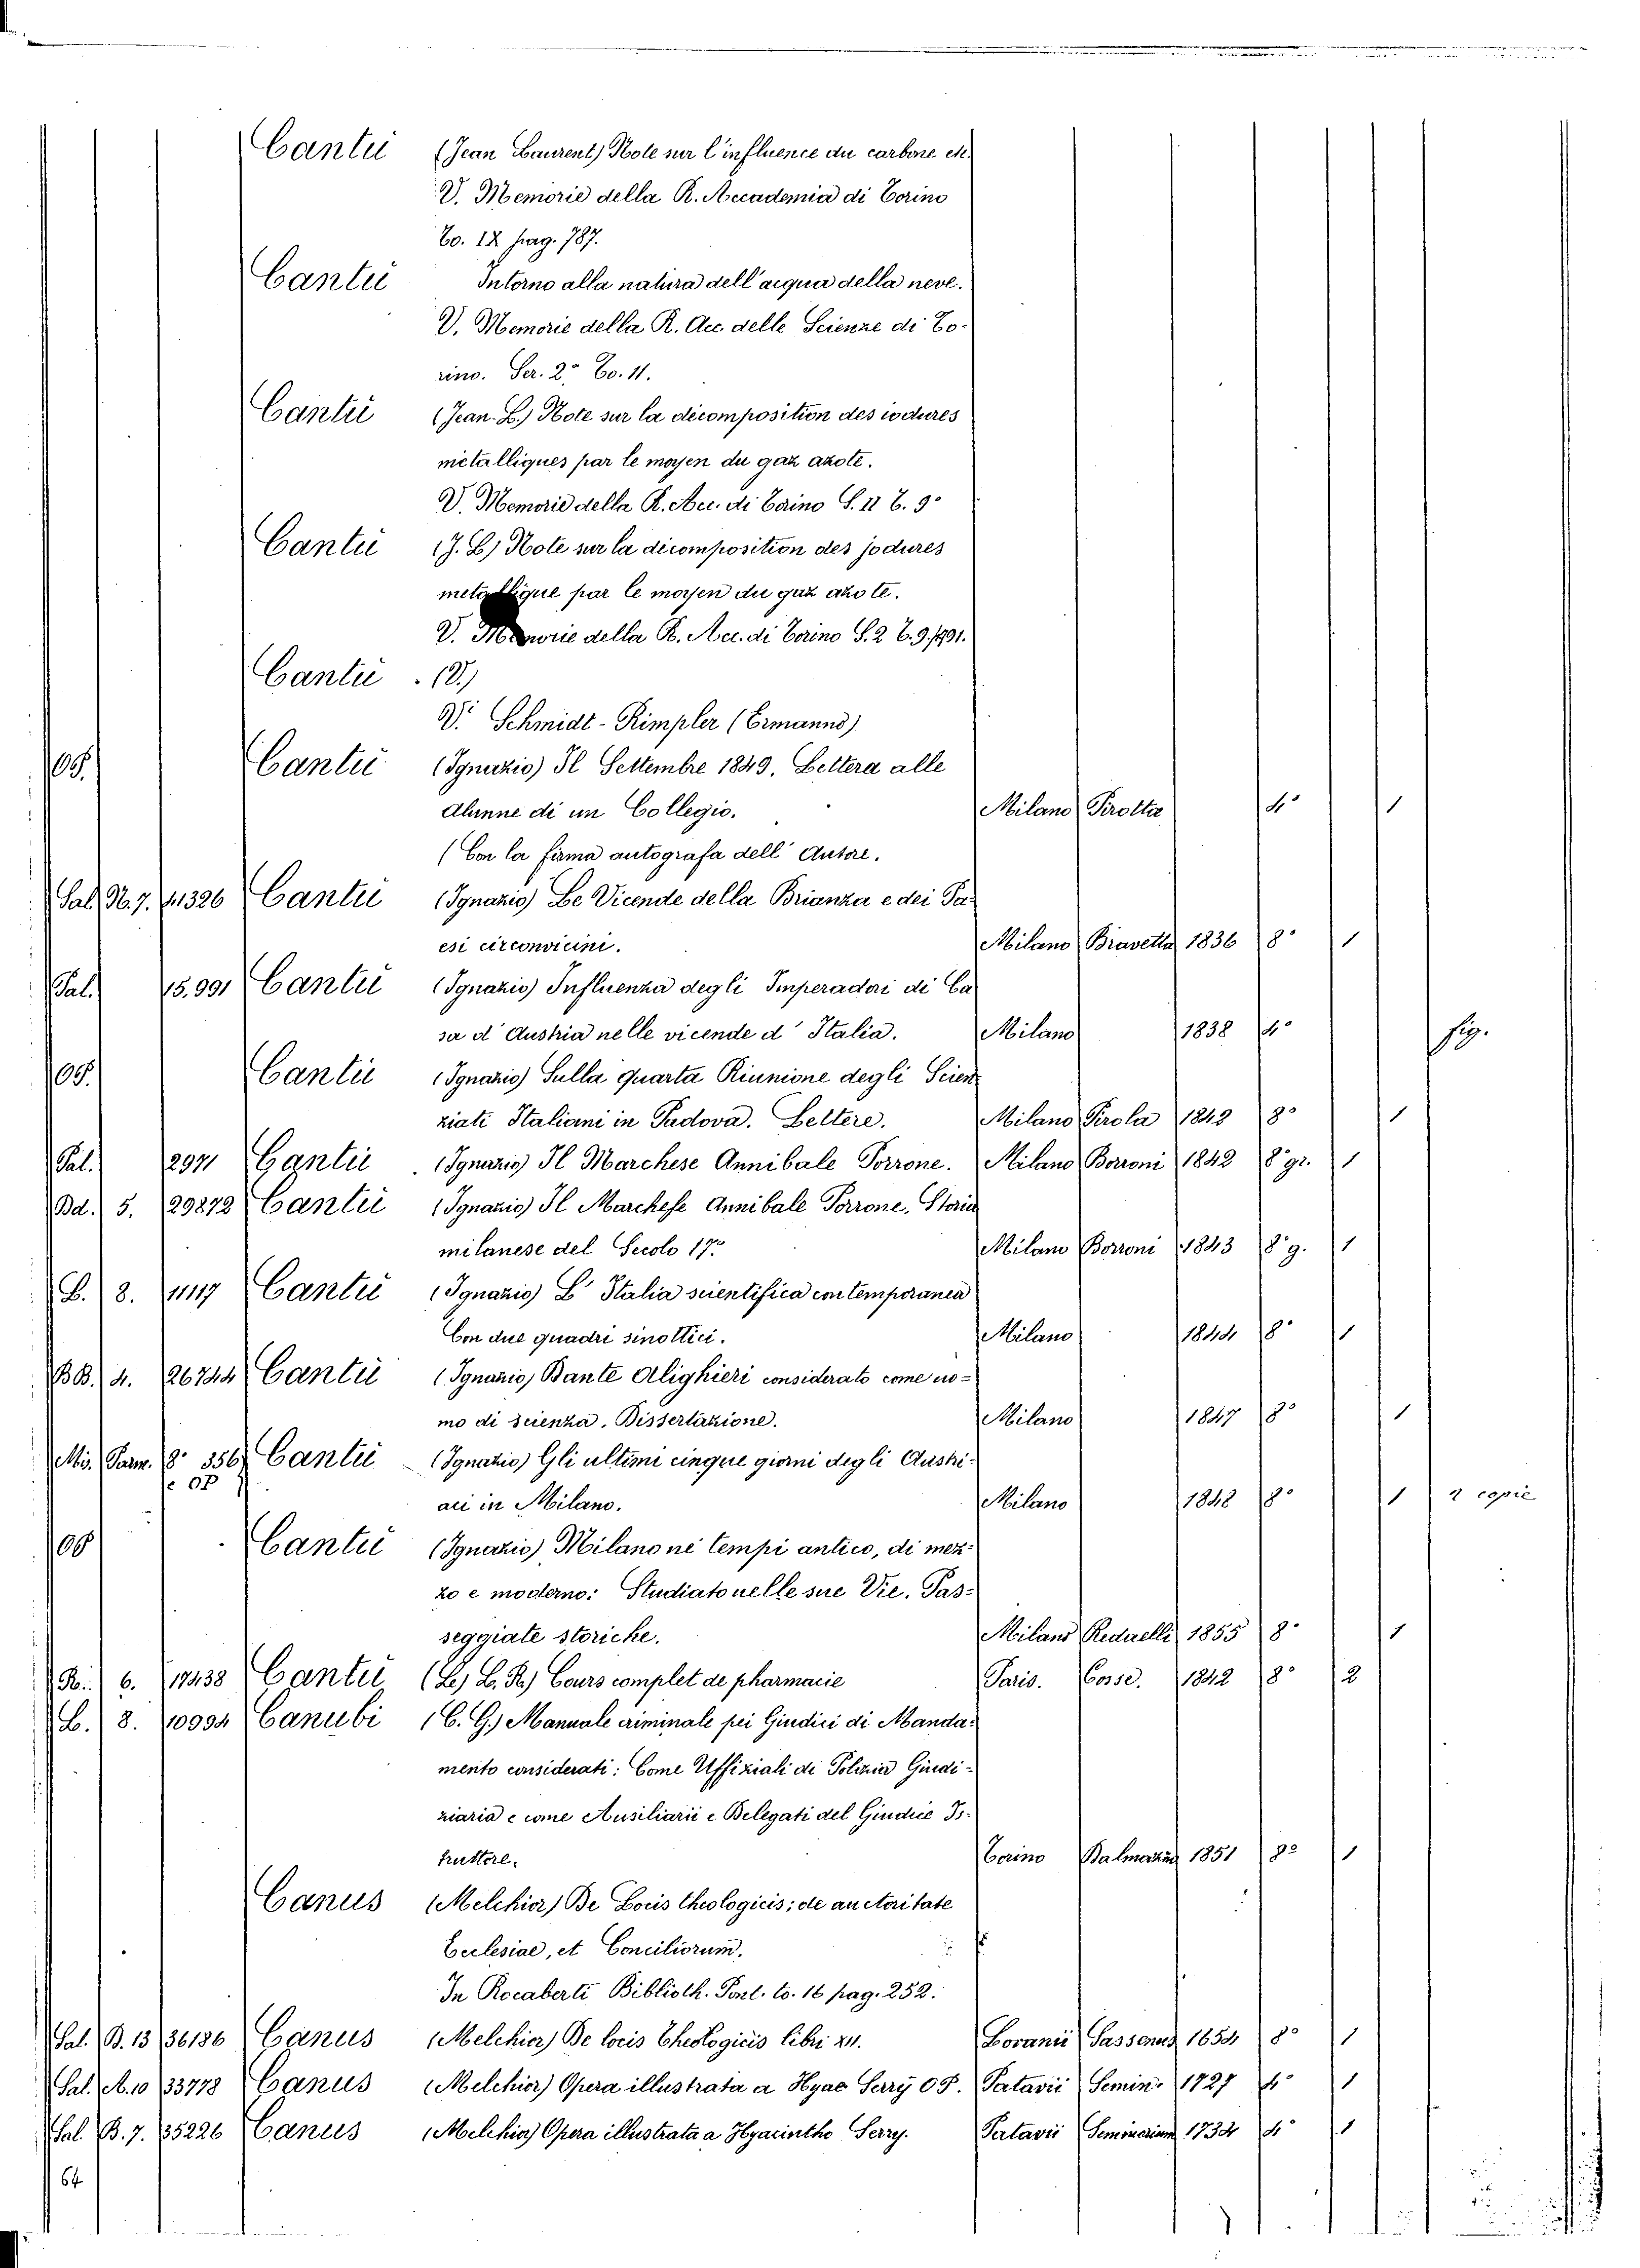 Cantù (Jean Laurent) Note sur l'influence du carbone etc.
V. Memorie della R. Accademia di Torino
To. 12 pag. 787.
Cantù Intorno alla natura dell'acqua della neve.
V. Memorie della R. Acc. delle Scienze di To-
rino. Ser. 2ª To. 11.
Cantù (Jean L.) Note sur la décomposition des iodures
métalliques par le moyen du gaz azote.
V. Memorie della R. Acc. di Torino S. II T. 9º
Cantù (J. L) Note sur la décomposition des jodures
metallique par le moyen du gaz azote.
V. Memorie della R. Acc. di Torino S. 2 T. 9.
Cantù . (V.)
V. Schmidt-Rimpler (Ermanno)
Cantù (Ignazio) Il Settembre 1849. Lettera alle
Alunne di un Collegio. Milano Pirotta 4º 1
(Con la firma autografa dell' Autore.
Sal. N. 7. 41326 Cantù (Ignazio) Le Vicende della Brianza e dei Pa-
esi circonvicini. Milano Bravetta 1836 8º 1
Pal. 15.991 Cantù (Ignazio) Influenza degli Imperadori di Ca-
sa d' Austria nelle vicende d' Italia. Milano 1838 4º fig.
Cantù (Ignazio) Sulla quarta Riunione degli Scien-
ziati Italiani in Padova. Lettere. Milano Pirola 1842 8º 1
Pal. 12971 Cantù . (Ignazio) Il Marchese Annibale Porrone. Milano Borroni 1842 8º gr. 1
Bd. 5. 29872 Cantù (Ignazio) Il Marchese Annibale Porrone, Storia
milanese del Secolo 17º Milano Borroni 1843 8º g. 1
B. 8. 11117 Cantù (Ignazio) L' Italia scientifica contemporanea
Con due quadri sinottici. Milano 1844 8º 1
BB. 4. 26744 Cantù (Ignazio) Dante Alighieri considerato come uo-
mo di scienza. Dissertazione. Milano 1847 8º 1
Mis. Parm. 8º 356 Cantù (Ignazio) Gli ultimi cinque giorni degli Austri-
aci in Milano. Milano 1848 8º 1 2 copie
Cantù (Ignazio) Milano nei tempi antico, di mez-
zo e moderno: Studiato nelle sue Vie. Pas-
seggiate storiche. Milano Redaelli 1855 8º 1
R. 6. 17438 Cantù (L) L. R.) Cours complet de pharmacie Paris. Cosse. 1842 8º 2
B. 8. 10994 Canubi (C. G.) Manuale criminale pei Giudici di Manda-
mento considerati: Come Uffiziali di Polizia Giudi-
ziaria e come Ausiliarii e Delegati del Giudice Is-
truttore. Torino Dalmazzo 1851 8º 1
Canus (Melchior) De Locis theologicis; de auctoritate
Ecclesiae, et Conciliorum.
In Rocaberti Biblioth. Pont. to. 16 pag. 252.
Sal. B. 13 36186 Canus (Melchior) De locis Theologicis libri XII. Lovanii Sassenus 1654 8º 1
Sal. A. 10 33778 Canus (Melchior) Opera illustrata a Hyac. Serry O P. Patavii Semin. 1727 4º 1
Sal. B. 7. 35226 Canus (Melchior) Opera illustrata a Hyacintho Serry. Patavii Seminarium 1734 4º 1
64